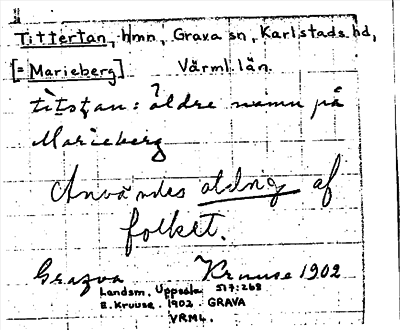 Tittertan, hmn, Grava sn, Karlstads hd,
[= Marieberg] Värml. län.
äldre namn på
Marieberg
Användes aldrig af
folket.
Kruuse 1902
Landsm. Uppsala 517:268
E. Kruuse. 1902. GRAVA
VRML.